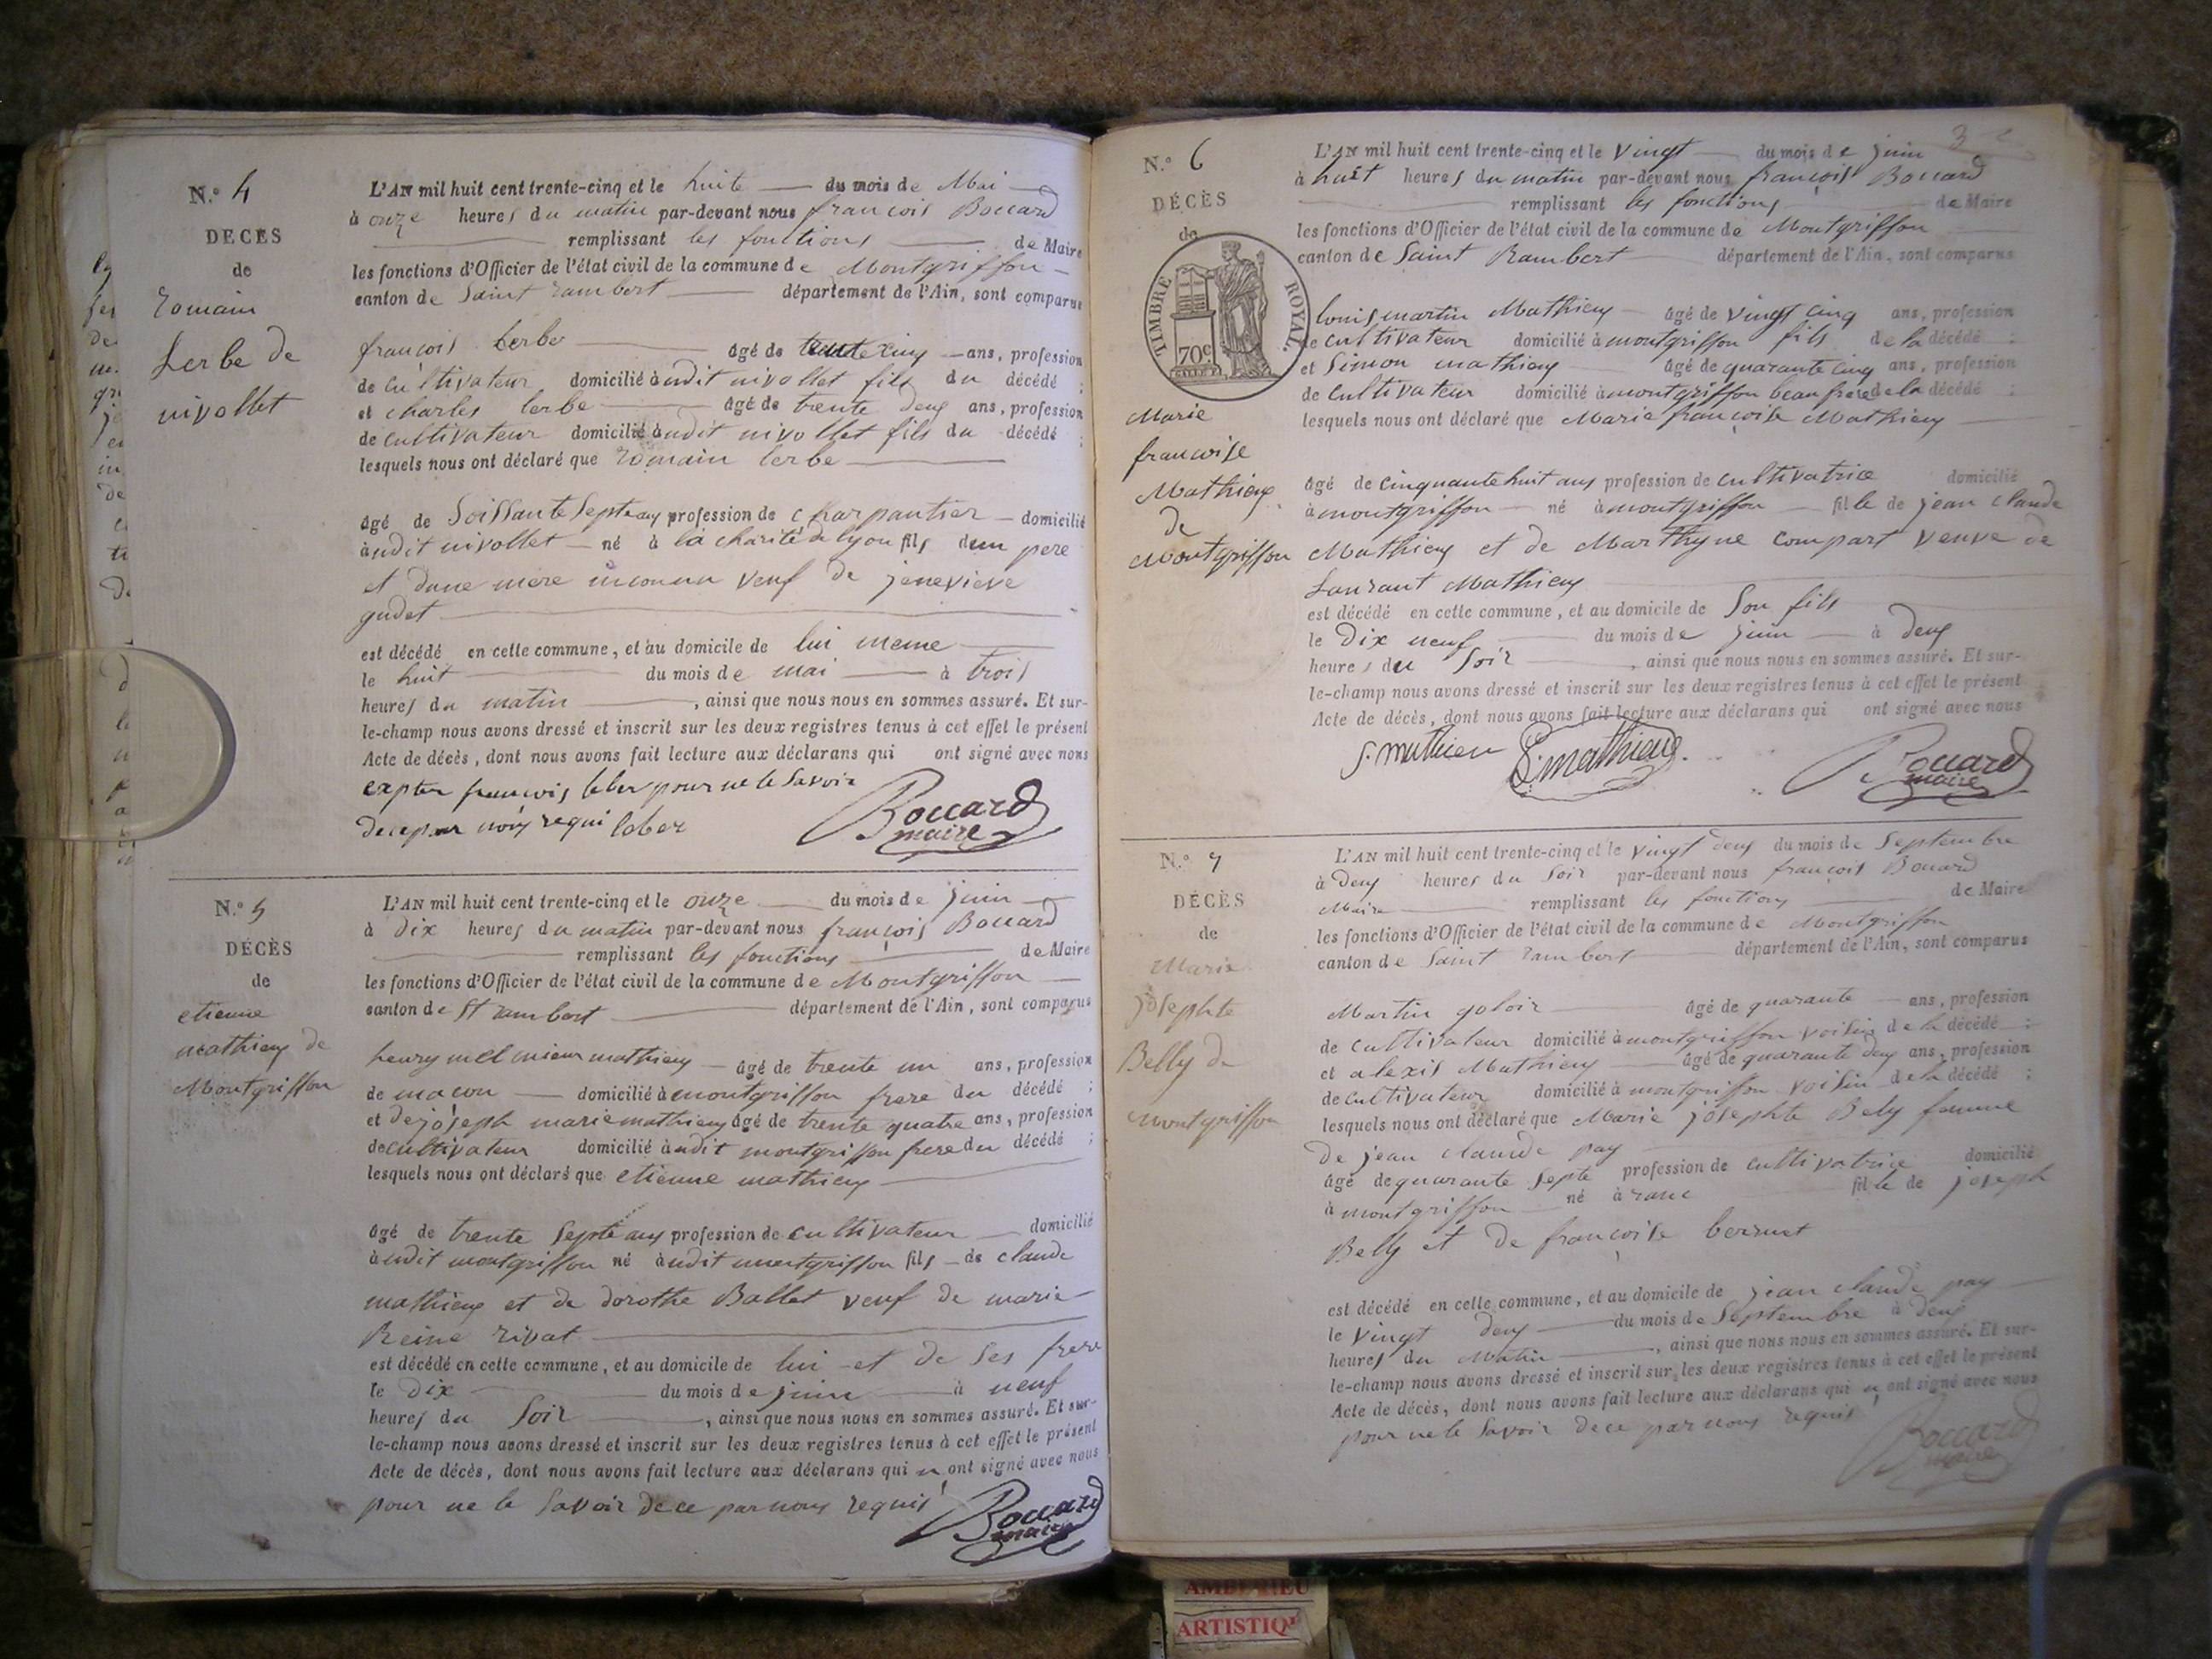 N.o 4
DÉCÈS
de
romain
Lerbe de
nivollet
L'AN mil huit cent trente-cinq et le huite du mois de Mai
à onze heures du matin par-devant nous françois Boccard
remplissant les fonctions de Maire
les fonctions d'Officier de l'état civil de la commune de Montgriffon
canton de Saint rambert département de l'Ain, sont comparus
françois Lerbe âgé de cinq ans, profession
de cultivateur domicilié àudit nivollet fils du décédé ;
et charles lerbe âgé de trente deux ans, profession
de cultivateur domicilié àudit nivollet fils du décédé ;
lesquels nous ont déclaré que romain lerbe
âgé de Soissante Septe ans profession de charpantier domicilié
àudit nivollet né à la charité de lyon fils dun pere
et dune mere inconnu veuf de jenevieve
gudet
est décédé en cette commune, et au domicile de lui meme
le huit du mois de mai à trois
heures du matin, ainsi que nous nous en sommes assuré. Et sur-
le-champ nous avons dressé et inscrit sur les deux registres tenus à cet effet le présent
Acte de décès, dont nous avons fait lecture aux déclarans qui ont signé avec nous
françois pour ne le Savoir
dece par nous requi
Boccard
maire
N.o 5
DÉCÈS
de
etienne
mathieux de
Montgriffon
L'AN mil huit cent trente-cinq et le onze du mois de juin
à Dix heures du matin par-devant nous françois Boccard
remplissant les fonctions de Maire
les fonctions d'Officier de l'état civil de la commune de Montgriffon
canton de St rambert département de l'Ain, sont comparus
henry mathieux âgé de trente un ans, profession
de macon domicilié à montgriffon frere du décédé ;
et de joseph marie mathieux âgé de trente quatre ans, profession
de cultivateur domicilié àudit montgriffon frere du décédé ;
lesquels nous ont déclaré que etienne mathieux
âgé de trente Septe ans profession de cultivateur domicilié
àudit montgriffon né àudit montgriffon fils de claude
mathieux et de dorothe Ballet veuf de marie
Reine rivat
est décédé en cette commune, et au domicile de lui et de Ses frere
le Dix du mois de juin à neuf
heures du Soir, ainsi que nous nous en sommes assuré. Et sur-
le-champ nous avons dressé et inscrit sur les deux registres tenus à cet effet le présent
Acte de décès, dont nous avons fait lecture aux déclarans qui n ont signé avec nous
pour ne le Savoir de ce par nous requis
Boccard
maire
3
N.o 6
DÉCÈS
de
TIMBRE ROYAL.
70c
Marie
francoise
Mathieux
de
Montgriffon
L'AN mil huit cent trente-cinq et le Vingt du mois de juin
à huit heures du matin par-devant nous françois Boccard
remplissant les fonctions de Maire
les fonctions d'Officier de l'état civil de la commune de Montgriffon
canton de Saint Rambert département de l'Ain, sont comparus
louis martin Mathieux âgé de vingt cinq ans, profession
de cultivateur domicilié à montgriffon fils de la décédé ;
et Simon mathieux âgé de quarante cinq ans, profession
de Cultivateur domicilié à montgriffon beau frere de la décédé ;
lesquels nous ont déclaré que Marie françoise Mathieux
âgé de cinquante huit ans profession de cultivatrice domicilié
à montgriffon né à montgriffon fille de jean claude
Mathieux et de Marthyne Compart veuve de
Laurant Mathieux
est décédé en cette commune, et au domicile de Son fils
le Dix neuf du mois de juin à deux
heures du Soir, ainsi que nous nous en sommes assuré. Et sur-
le-champ nous avons dressé et inscrit sur les deux registres tenus à cet effet le présent
Acte de décès, dont nous avons fait lecture aux déclarans qui ont signé avec nous
S. mathieu L. mathieux. Boccard
maire
N.o 7
DÉCÈS
de
Marie
josephte
Belly de
montgriffon
L'AN mil huit cent trente-cinq et le vingt deux du mois de Septembre
à Deux heures du Soir par-devant nous françois Boccard
Maire remplissant les fonctions de Maire
les fonctions d'Officier de l'état civil de la commune de Montgriffon
canton de Saint rambert département de l'Ain, sont comparus
Martin goloir âgé de quarante ans, profession
de cultivateur domicilié à montgriffon voisin de la décédé ;
et alexis Mathieux âgé de quarante deux ans, profession
de cultivateur domicilié à montgriffon voisin de la décédé ;
lesquels nous ont déclaré que Marie josephte Bely femme
de jean claude pay
âgé de quarante Septe profession de cultivatrice domicilié
à montgriffon né à ranc fille de joseph
Belly et de françoise berruet
est décédé en cette commune, et au domicile de jean claude pay
le vingt deux du mois de Septembre à deux
heures du Matin, ainsi que nous nous en sommes assuré. Et sur-
le-champ nous avons dressé et inscrit sur les deux registres tenus à cet effet le présent
Acte de décès, dont nous avons fait lecture aux déclarans qui n ont signé avec nous
pour ne le Savoir de ce par nous requis
Boccard
maire
AMBERIEU
ARTISTIQU